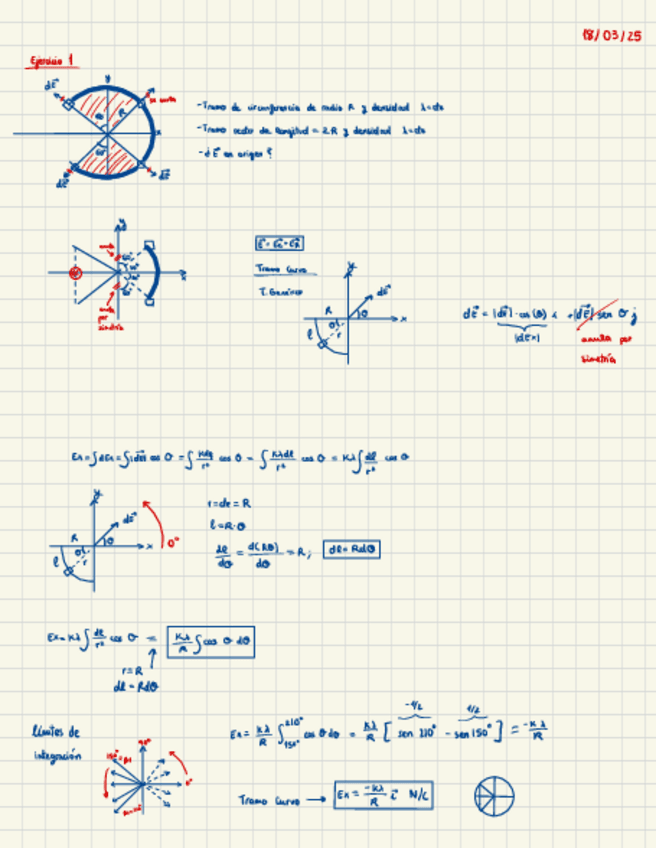 18/03/25
Ejercicio 1
dE⃗
y
R
60
x
60
dE⃗
dE⃗
-Tramo de circunferencia de radio R y densidad λ=cte
-Tramo recto de longitud = 2R y densidad λ=cte
-dE⃗ en origen?
y
x
por simetría
Tramo Curvo
T. Genérico
y
dE⃗
R
θ
x
l
r
dE⃗ = |dE⃗|·cos(θ) i + |dE⃗| sen θ j
|dEx|
anula por
simetría
Ex=∫dEx=∫|dE| cos θ = ∫ Kdq/r² cos θ = ∫ Kλdl/r² cos θ = Kλ∫ dl/r² cos θ
y
dE⃗
R
θ
x
0°
l
r
r=cte=R
l=R·θ
dl/dθ = d(Rθ)/dθ = R; dl=Rdθ
Ex=Kλ∫ dl/r² cos θ = Kλ/R ∫cos θ dθ
r=R
dl=Rdθ
límites de
integración
90°
0°
-1/2 1/2
Ex= Kλ/R ∫₁₅₀°²¹⁰° cos θ dθ = Kλ/R [sen 210° - sen 150°] = -Kλ/R
Tramo Curvo → Ex = -Kλ/R i⃗ N/C